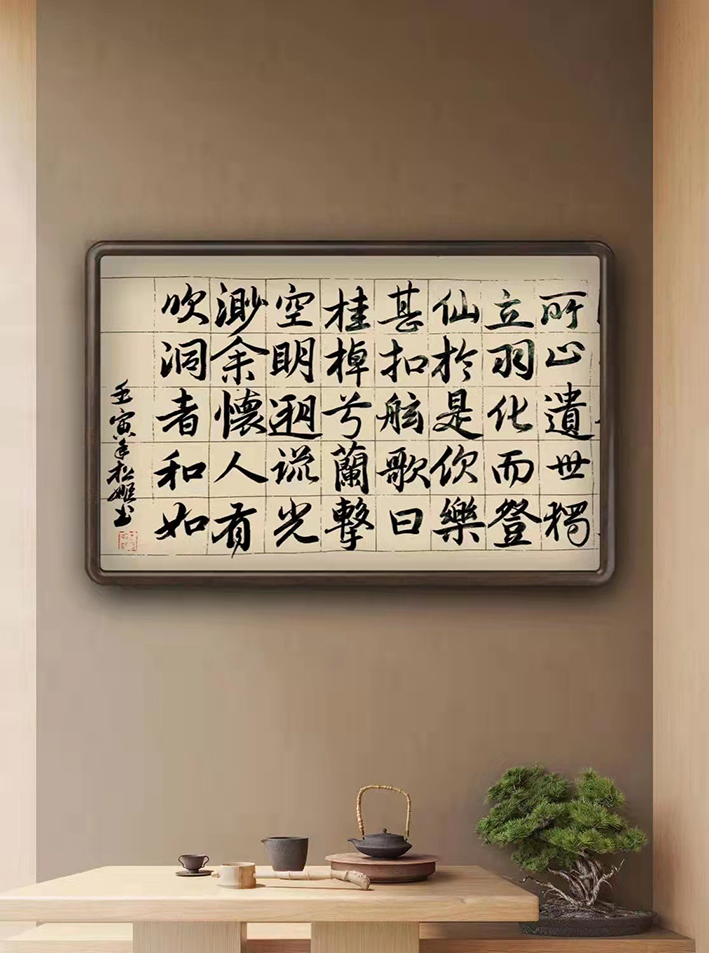 所止遺世獨
立羽化而登
仙於是飲樂
甚扣舷歌曰
桂棹兮蘭擊
空明遡流光
渺余懷人有
吹洞者和如
壬寅年松姬书